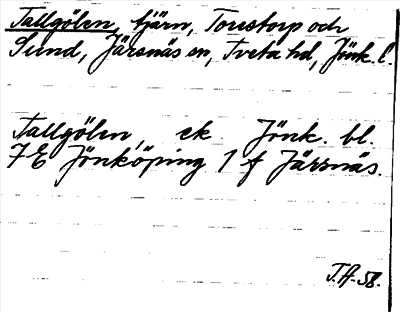 Tallgölen, tjärn, Torstorp och
Sund, Järsnäs sn, Tveta hd, Jönk. l.
Tallgölen, ek. Jönk. bl.
7E Jönköping 1 f Järsnäs.
T.A. 58.